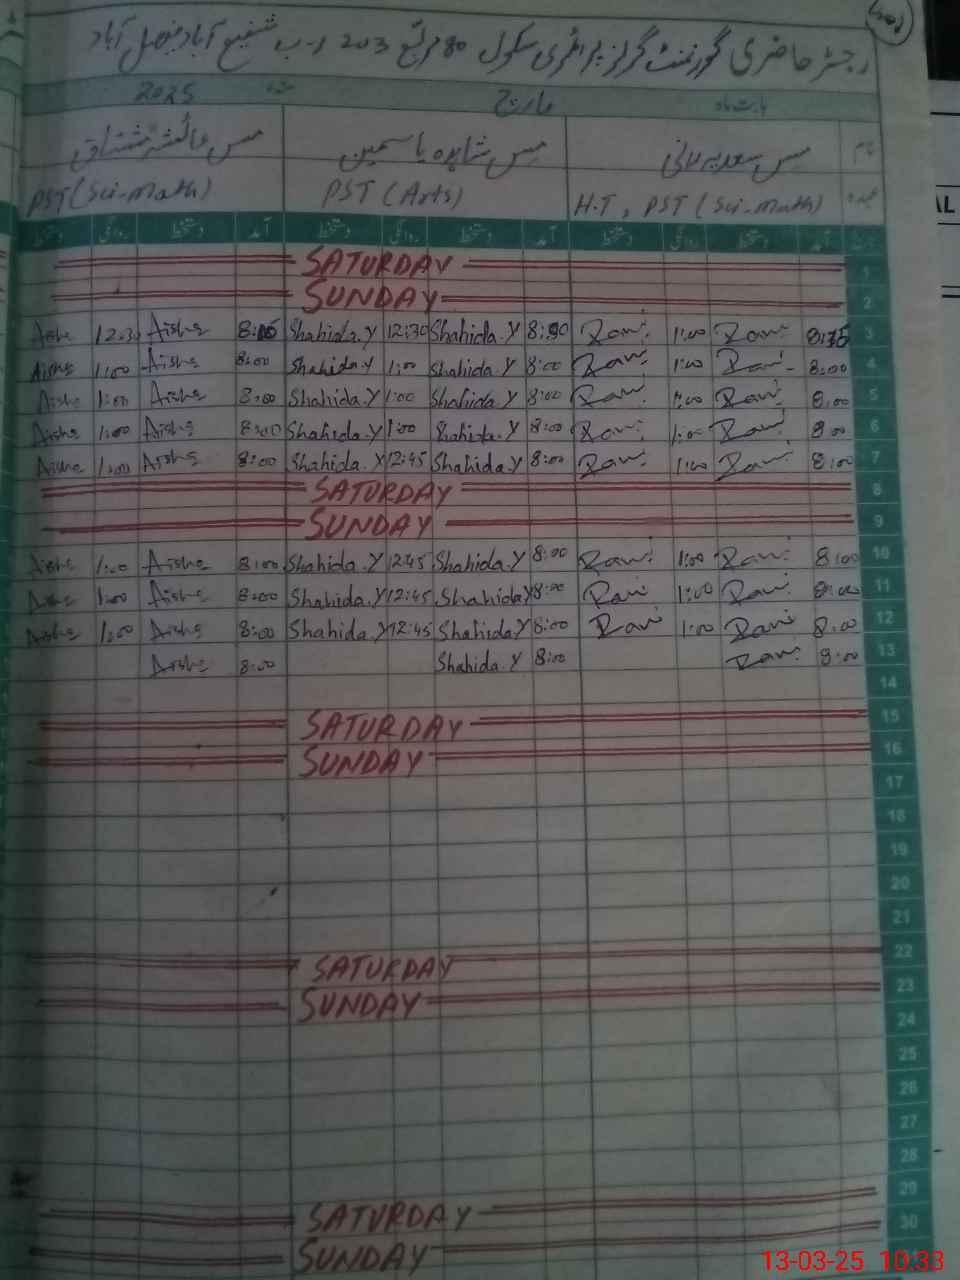 رجسٹر حاضری گورنمنٹ گرلز پرائمری سکول 80 مربع 203 ر-ب شفیع آباد فیصل آباد
بابت ماہ مارچ 2025
نام مس سعدیہ مس شاہدہ یاسمین مس عائشہ مشتاق
عہدہ H.T, PST (Sci-math) PST (Arts) PST (Sci-Math)
تاریخ آمد دستخط روانگی دستخط آمد دستخط روانگی دستخط آمد دستخط روانگی دستخط
SATURDAY 1
SUNDAY 2
Aisha 12:30 Aisha Shahida.Y 12:30 Shahida.Y Rani 1:00 Rani 3
Aisha 1:00 Aisha 8:00 Shahida.Y 1:00 Shahida.Y 8:00 Rani 1:00 Rani 8:00 4
Aisha 1:00 Aisha 8:00 Shahida.Y 1:00 Shahida.Y 8:00 Rani 1:00 Rani 8:00 5
Aisha 1:00 Aisha 8:00 Shahida.Y 1:00 Shahida.Y 8:00 Rani 1:00 Rani 8:00 6
Aisha 1:00 Aisha 8:00 Shahida.Y 12:45 Shahida.Y 8:00 Rani 1:00 Rani 8:00 7
SATURDAY 8
SUNDAY 9
Aisha 1:00 Aisha 8:00 Shahida.Y 12:45 Shahida.Y 8:00 Rani 1:00 Rani 8:00 10
Aisha 1:00 Aisha 8:00 Shahida.Y 12:45 Shahida.Y 8:00 Rani 1:00 Rani 8:00 11
Aisha 1:00 Aisha 8:00 Shahida.Y 12:45 Shahida.Y 8:00 Rani 1:00 Rani 8:00 12
Aisha 8:00 Shahida.Y 8:00 Rani 8:00 13
14
SATURDAY 15
SUNDAY 16
17
18
19
20
21
SATURDAY 22
SUNDAY 23
24
25
26
27
28
SATURDAY 29
SUNDAY 30
13-03-25 10:33